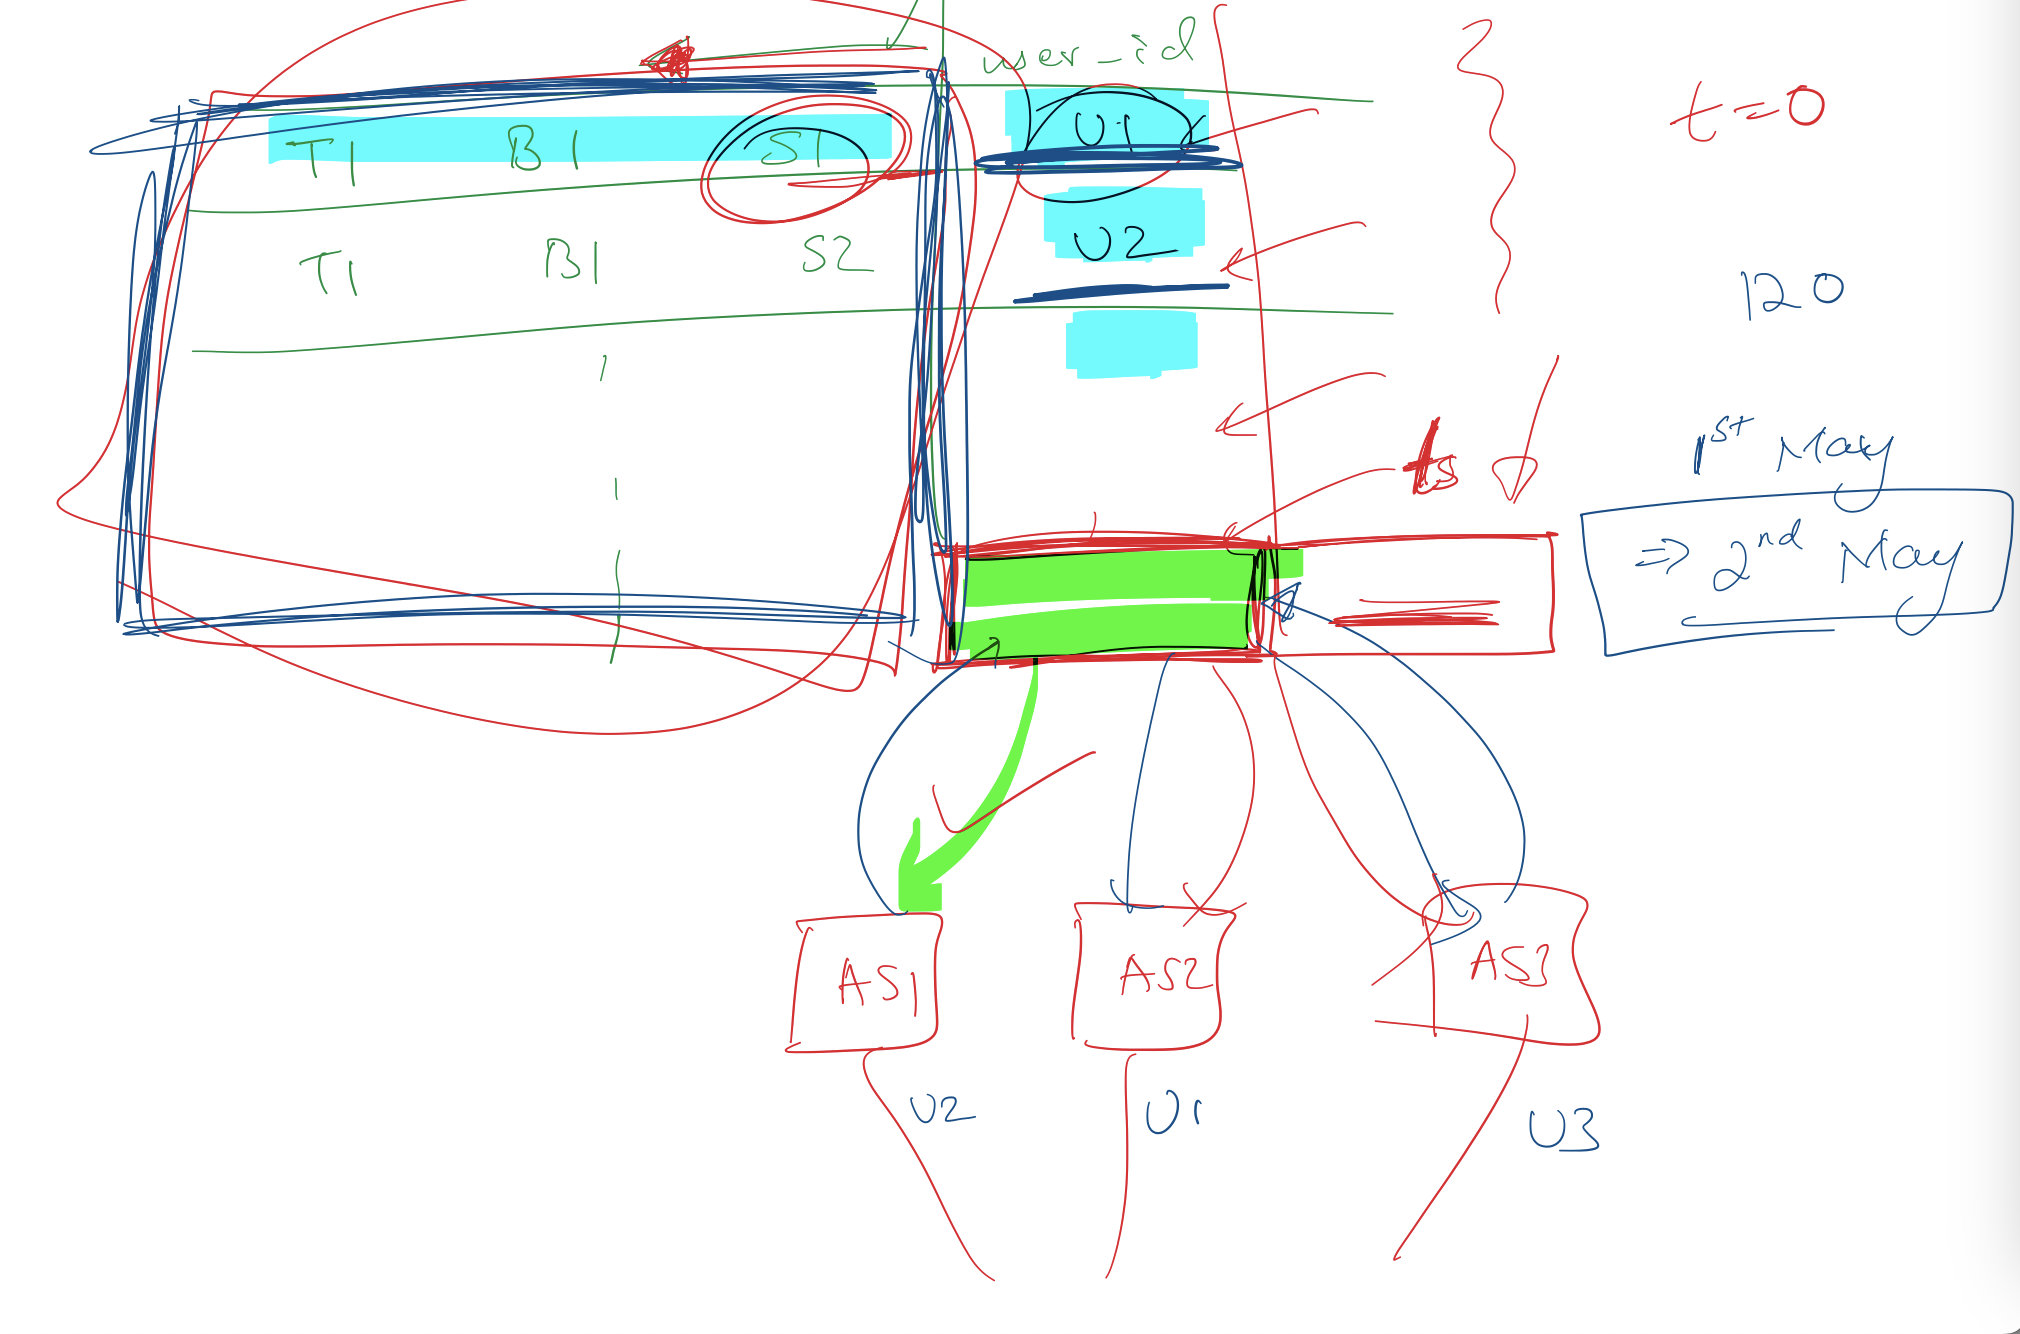 user_id
T1 B1 S1 U1
t=0
T1 B1 S2 U2
120
1st May
ts
=> 2nd May
AS1 AS2 AS3
U2 U1 U3